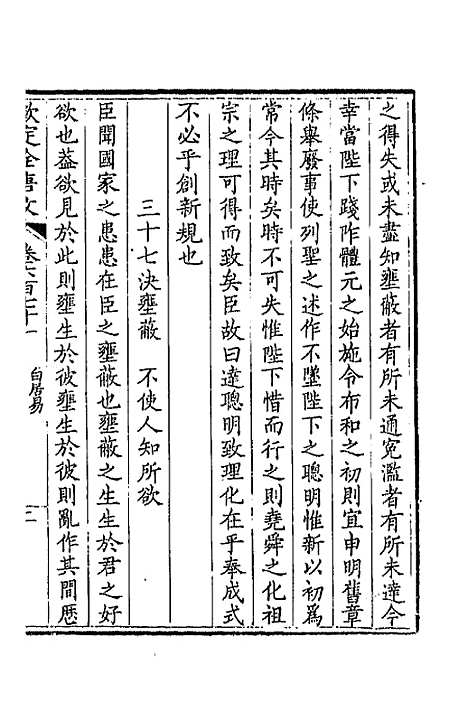 之得失或未盡知壅蔽者有所未通寃濫者有所未達今
幸當陛下踐阼體元之始施令布和之初則宜申明舊章
條舉廢事使列聖之述作不墜陛下之聰明惟新以初爲
常今其時矣時不可失惟陛下惜而行之則堯舜之化祖
宗之理可得而致矣臣故曰達聰明致理化在乎奉成式
不必乎創新規也
三十七決壅蔽　不使人知所欲
臣聞國家之患患在臣之壅蔽也壅蔽之生生於君之好
欲也葢欲見於此則壅生於彼壅生於彼則亂作其間歴
欽定全唐文　卷六百七十一　白居易　二